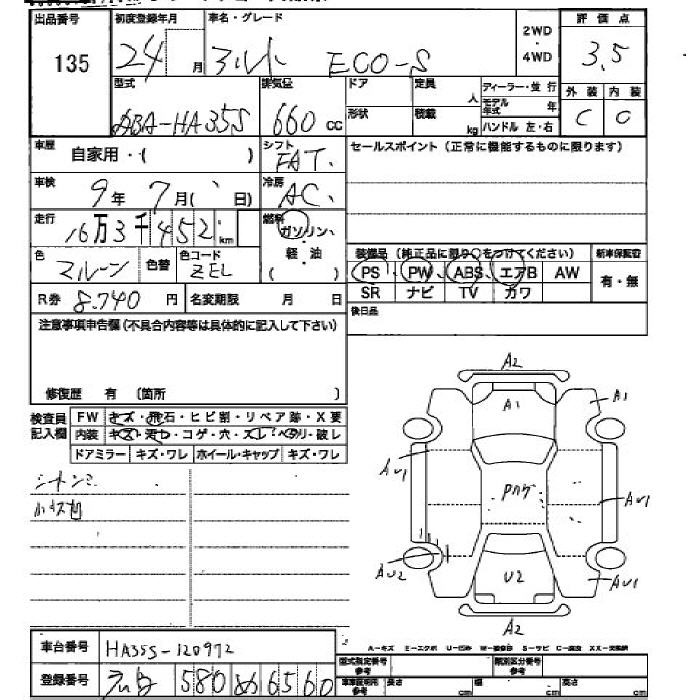 出品番号 初度登録年月 車名・グレード 2WD・4WD 評価点
135 24 月 アルト ECO-S 3.5
型式 排気量 ドア 定員 人 ディーラー・並行 外装 内装
ABA-HA35S 660 cc 形状 積載 kg モデル年式 年 C C
ハンドル 左・右
車歴 自家用・( ) シフト FAT. セールスポイント(正常に機能するものに限ります)
車検 9年 7月( 日) 冷房 AC
走行 16万3千452 km 燃料 ガソリン 軽・油 ( )
装備品(純正品に限り○をつけてください) 新車保証書
色 マルーン 色替 色コード ZEL
PS PW ABS エアB AW 有・無
R券 8.740 円 名変期限 月 日 SR ナビ TV カワ
注意事項申告欄(不具合内容等は具体的に記入して下さい) 後日品
修復歴 有 〔箇所 〕
検査員記入欄 FW キズ・飛石・ヒビ割・リペア跡・X要
内装 キズ・汚れ・コゲ・穴・スレ・ヘタリ・破レ
ドアミラー キズ・ワレ ホイール・キャップ キズ・ワレ
シートシミ
小キズ凹
A2
A1 A1
AU1 Pハゲ AU1
AU2 U2 AU1
A2
A-キズ E-エクボ U-凹み W-補修跡 S-サビ C-腐食 XX-交換済
車台番号 HA35S-120972
型式指定番号 参考 類別区分番号 参考
登録番号 580 め 6560
車庫証明用 参考 長さ cm 幅 cm 高さ cm